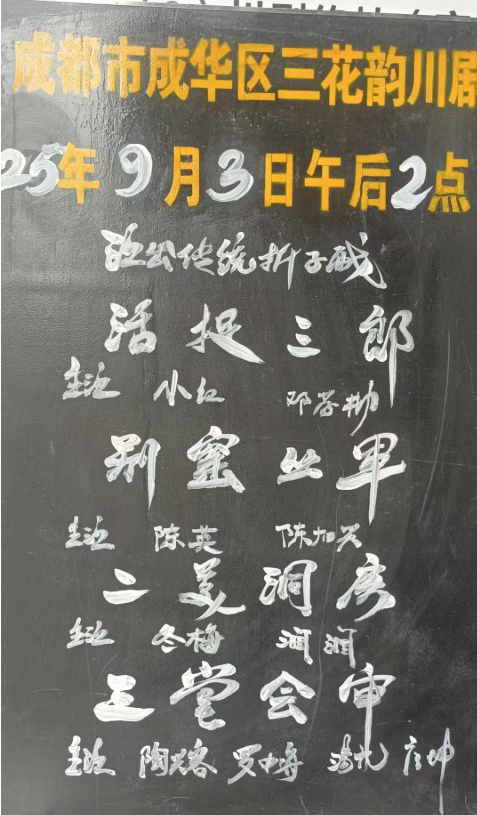 成都市成华区三花韵川剧
25年9月3日午后2点
演出传统折子戏
活捉三郎
主演 小红 邓学勤
别窑从军
主演 陈英 陈加兴
二美洞房
主演 冬梅 润润
三堂会审
主演 陶 罗中 坤